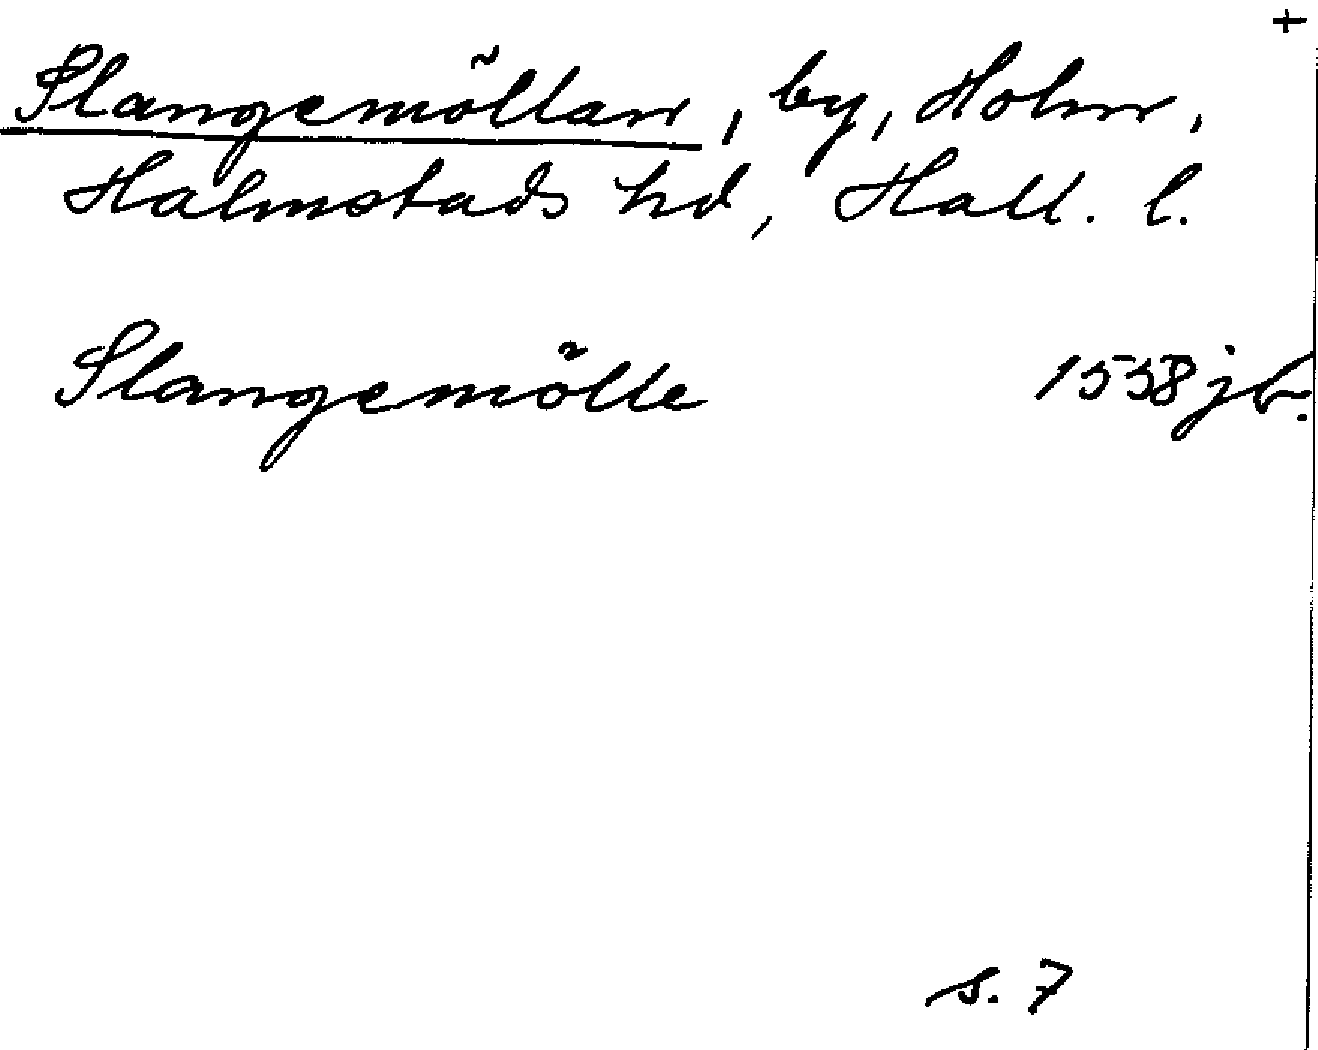 +
Slangemöllan, by, Holm,
Halmstads hd, Hall. l.
Slangemölle 1558 jb.
s. 7